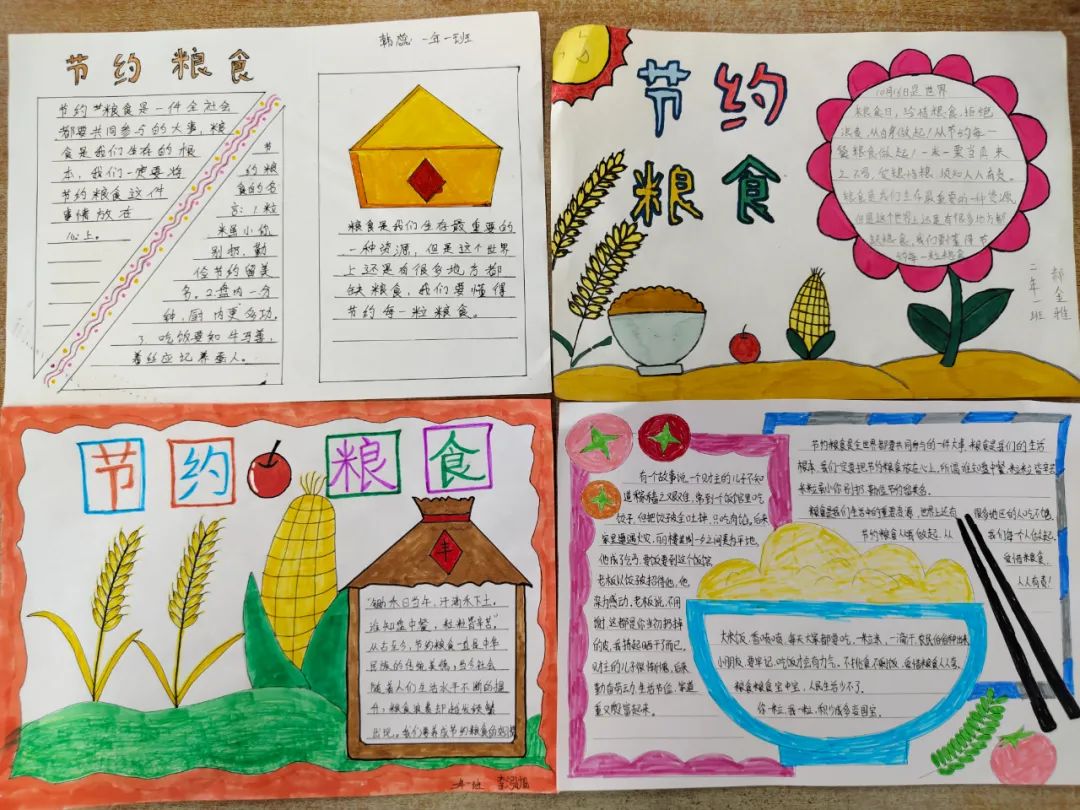 韩蕊 一年一班
节约粮食
节约节粮食是一件全社会
都要共同参与的大事,粮
食是我们生存的根
本,我们一定要将
节约粮食这件
事情放在
心上。
节
约粮
食的名
言:1粒
米虽小优
别扔,勤
俭节约留美
名。2.盘内一分
钟,厨内更多功,
3、吃饭要知牛马善,
着丝应记养蚕人。
粮食是我们生存最重要的
一种资源,但是这个世界
上还是有很多地方都
缺粮食,我们要懂得
节约每一粒粮食。
节约
粮食
10月16日是世界
粮食日,珍惜粮食,拒绝
浪费,从自身做起!从节约每一
餐粮食做起!一米一粟当思来
之不易,爱粮惜粮须知人人有责。
粮食是我们生存最重要的一种资源
但是这个世界上还是有很多地方都
缺粮食,我们要懂得节
约每一粒粮食
二年一班
郝金雅
节约粮食
丰
"锄禾日当午,汗滴禾下土。
谁知盘中餐,粒粒皆辛苦"
从古至今,节约粮食一直是中华
民族的传统美德,当今社会
随着人们生活水平不断的提
升,粮食浪费却越发频繁
出现。我们要养成节约粮食的习惯
一年一班
有个故事说,一个财主的儿子不知
道稼穑之艰难,常到个饭馆里吃
饺子,但把饺子皮全吐掉,只吃肉馅。后来
家里遭遇火灾,
他成了乞丐,要饭要到这个饭馆
老板以饺子皮招待他,他
深为感动,老板说,不用
谢,这都是你当初扔掉
的皮,我捞起晒干而已,
财主的儿子很惭愧,后来
勤奋劳动,生活节俭,家道
重又殷富起来。
节约粮食是全世界都要共同参与的一件大事,粮食是我们的生活
根本,我们一定要把节约粮食放在心上,所谓谁知盘中餐,粒粒皆辛苦
米粒虽小你别扔,勤俭节约留美名。
粮食是我们生活中的重要资源,世界上还有
很多地区的人吃不饱,
节约粮食人嘴做起,从
我们每个人做起,
爱惜米粮食,
人人有责!
大米饭,香喷喷,每天大家都要吃,一粒米,一滴汗,农民伯伯种出来
小朋友,要牢记,吃饭才会有力气,不挑食不剩饭,爱惜粮食人人夸,
粮食粮食宝中宝,人民生活少不了,
你一粒,我一粒,积少成多是国宝。